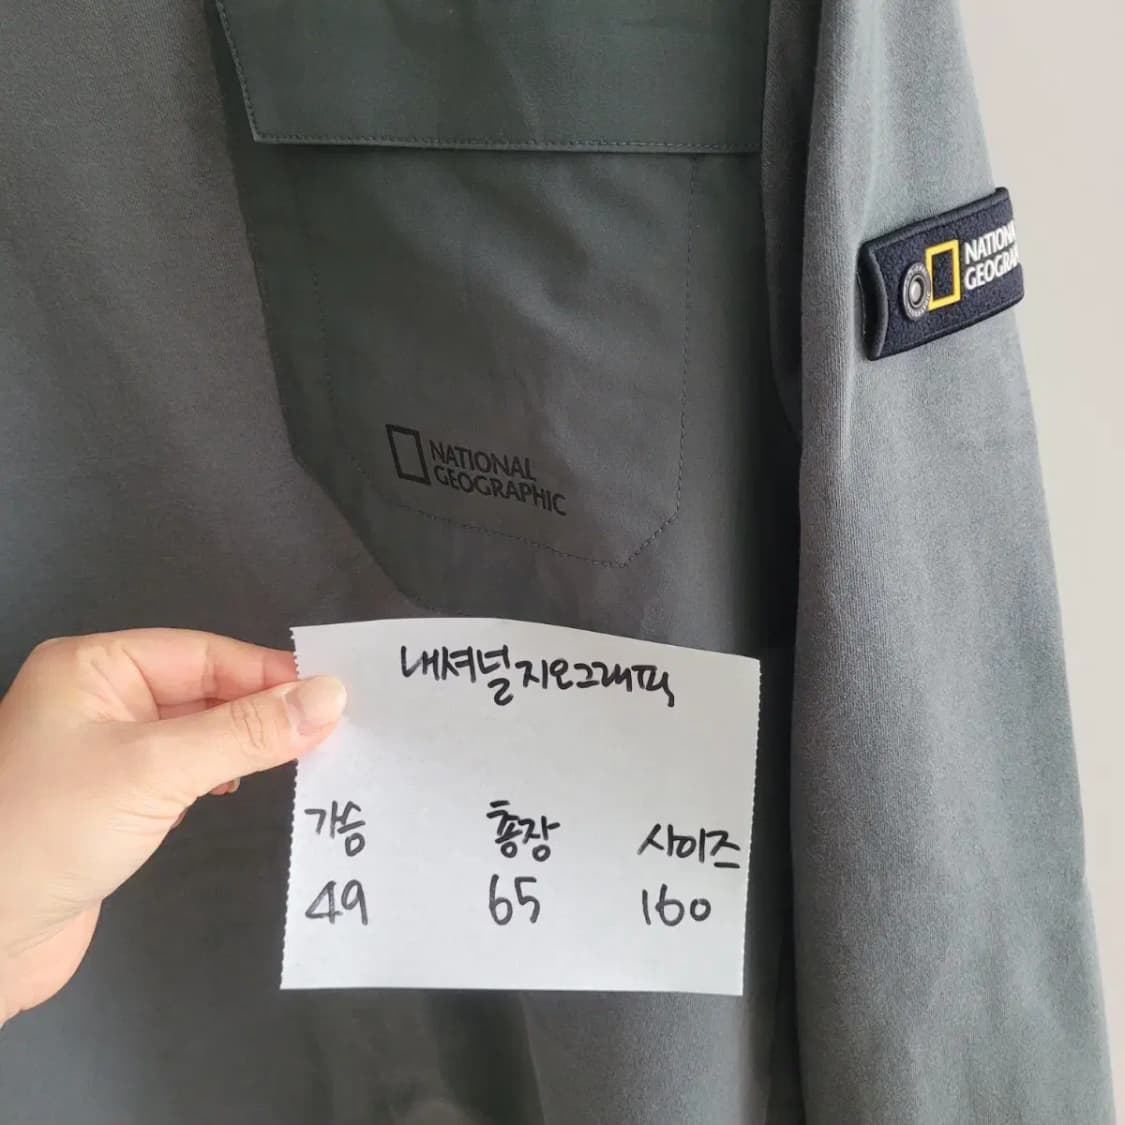 NATION
GEOGRA
NATIONAL
GEOGRAPHIC
내셔널지오그래픽
가슴 총장 사이즈
49 65 160